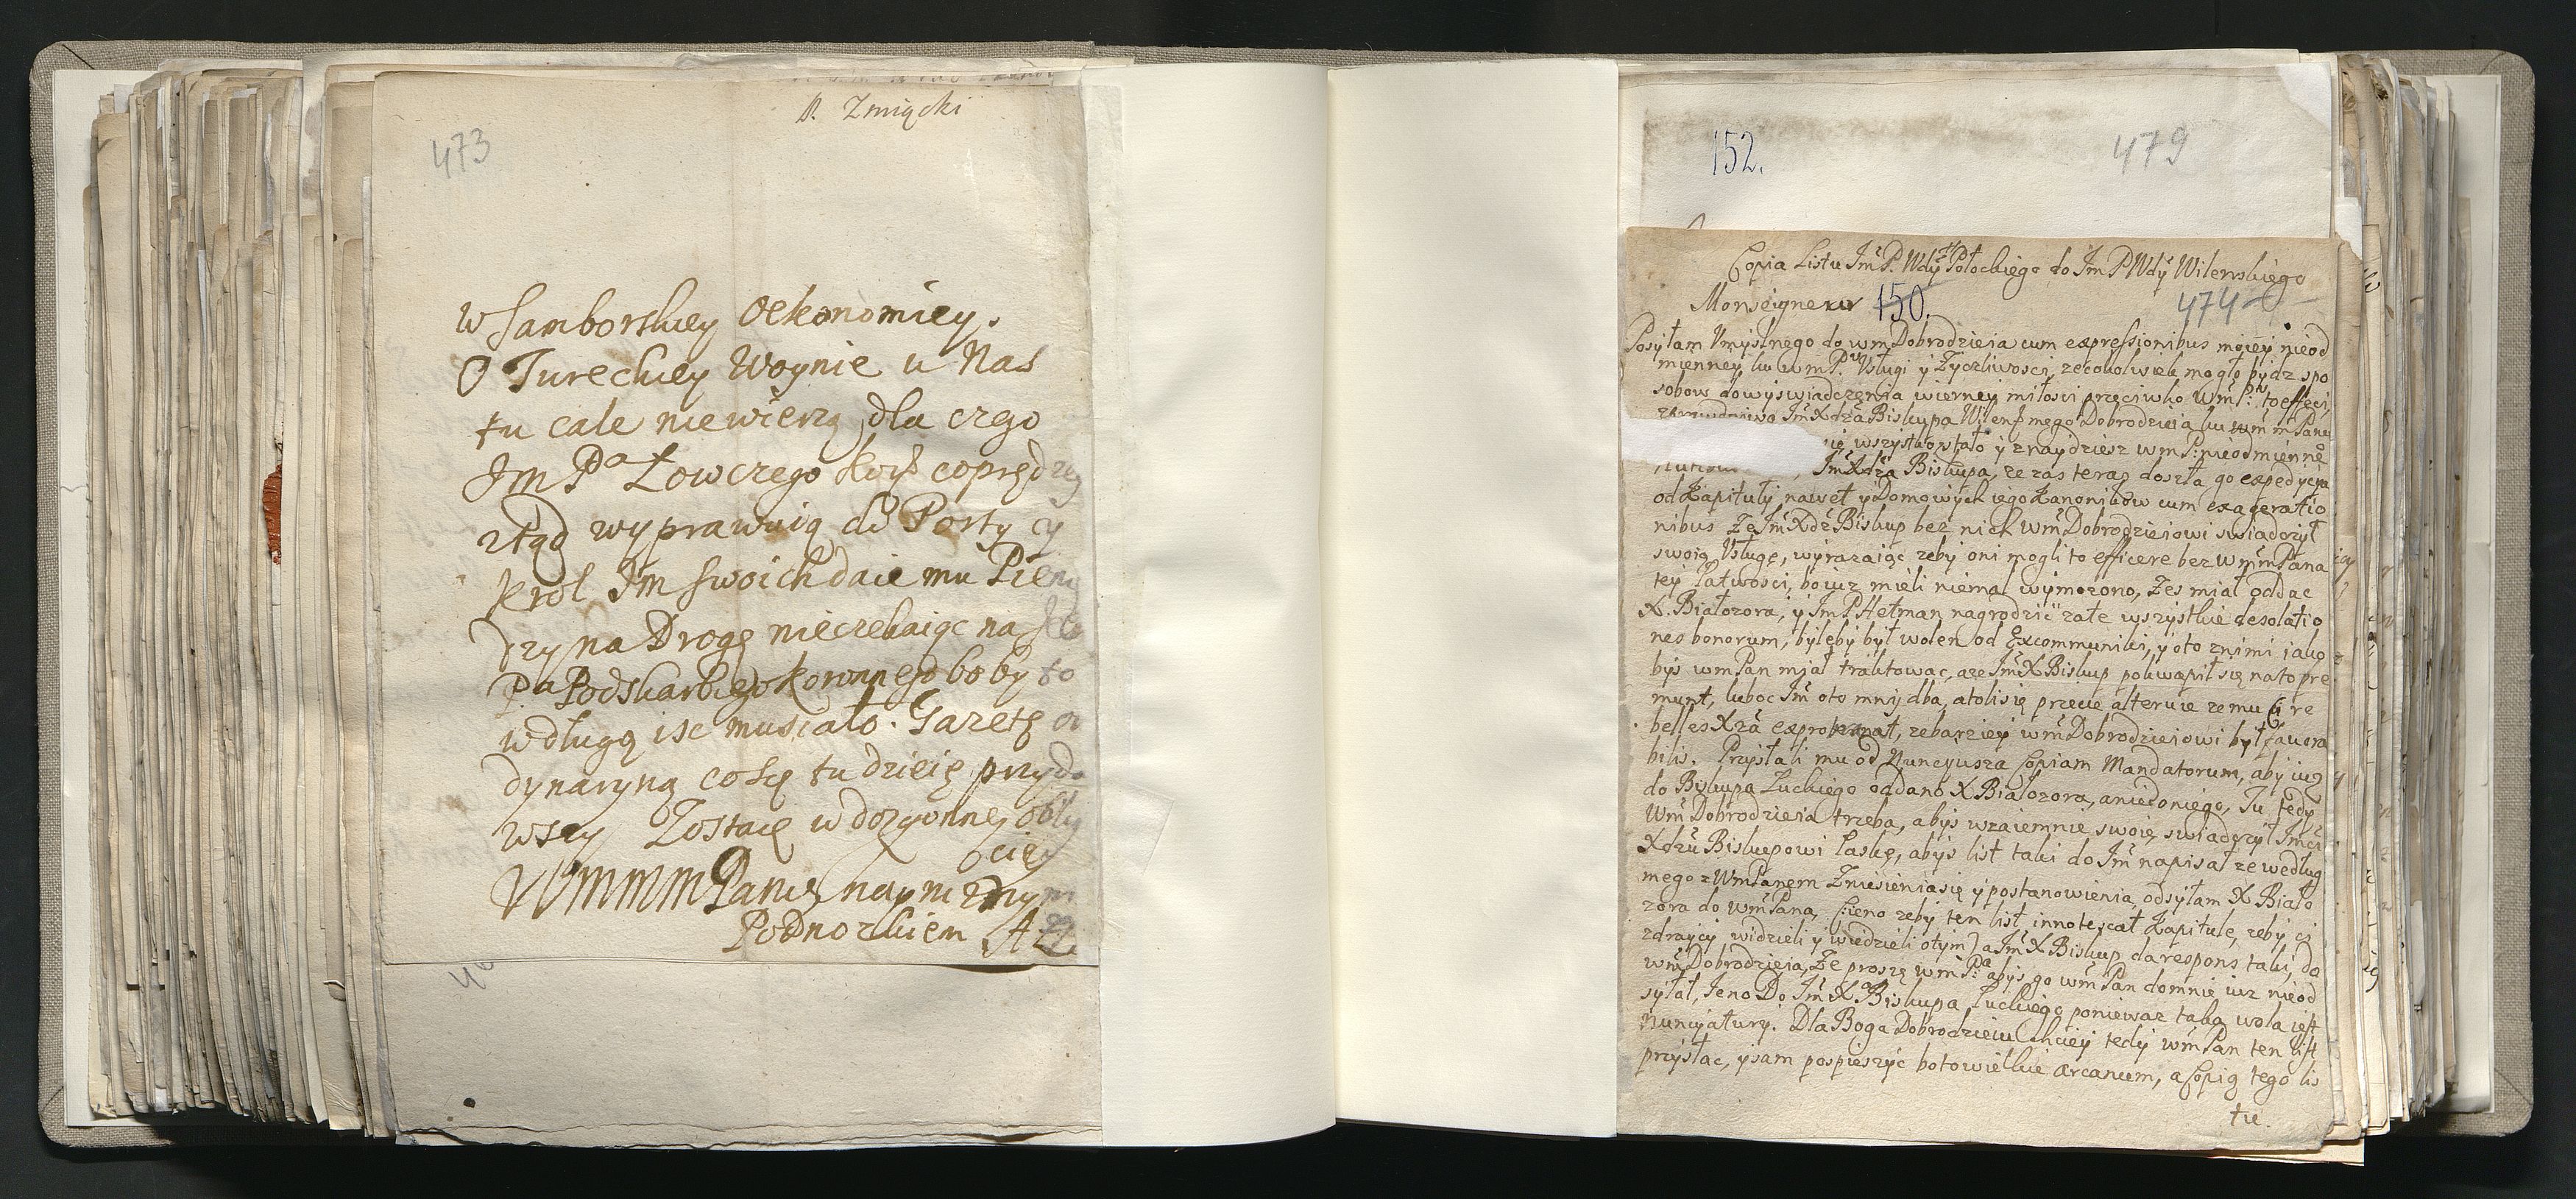 Zmiącki
473
w Samborskiey Oekonomiey.
O Tureckiey Woynie u Nas
tu cale niewierzą, dla czego
Jm Pa Łowczego Kor coprędzey
ztąd wyprawuią do Porty
Krol Jm swoich daie mu Pienę
dzy na Drogę nieczekaiąc na
Pa Podskarbiego Koronnego bo by to
wdługą isc musiało. Gazetę or
dynaryną co się tu dzieie przyda
wszy Zostaię w dozgonney obli
Wmmm Pana naynizszym
Podnozkiem AZ
152.
479
Copia Listu Jm P. Wdy Połockiego do Jm P Wdy Wilenskiego
Monseigneur 150. 474
Posyłam Umyslnego do wm Dobrodzieia cum expressionibus moiey nieod
mienney ku wm P. Usługi y Zyczliwosci, ze cokolwiek mogło bydz spo
sobow do wyswiadczenia wierney miłosci przeciwko Wm P. to effeci,
Jm Xdza Biskupa Wilens mego Dobrodzieia ku wm m Panu
się wszystko stało y znaydziesz w m P. nieodmienne
Jm Xdza Biskupa, ze zas teraz doszła go expedycya
od Kapituły nawet y Domowych iego Kanonikow cum exageratio
nibus Ze Jm Xdz Biskup bez nich wm Dobrodzieiowi swiadczył
swoią Usługę, wyrazaiąc zeby oni mogli to efficere bez w m Pana
tey łatwosci, bo iuz mieli niemal wymorzono, Zes miał oddac
X. Białozora, y Jm P Hetman nagrodzić zate wszystkie desolatio
nes bonorum, byleby był wolen od Excommuniki, y oto znimi iako
bys wm Pan miał traktowac, aze Jm X Biskup pokwapił się na to pre
munt, luboc Jm oto mniy dba, atoli się przecie alteruie ze mu ci re
belles Xza exprobrant, ze barziey wm Dobrodzieiowi był favora
bilis. Przysłali mu od Nuncyusza Copiam Mandatorum, aby iuz
do Biskupa Łuckiego oddano X Białozora, a nie do niego, Tu tedy
Wm Dobrodzieia trzeba, abys wzaiemnie swoię swiadczył Jmci
Xdzu Biskupowi łaskę, abys list taki do Jm napisał ze według
mego z Wm Panem Zniesienia się y postanowienia, odsyłam X Biało
zora do wm Pana, (ieno zeby ten list innotescat Kapitule, zeby ci
zdraycy widzieli y wiedzieli o tym) a Jm X Biskup da respons taki, do
wm Dobrodzieia, Ze proszę wm Pa abys go wm Pan do mnie iuz nieod
syłał, Ieno Do Jm Xa Biskupa Łuckiego poniewaz taka wola iest
Nuncyatury. Dla Boga Dobrodzieiu Chciey tedy wm Pan ten list
przysłac, y sam pospieszyc bo to wielkie arcanum, a Copią tego lis
tu.